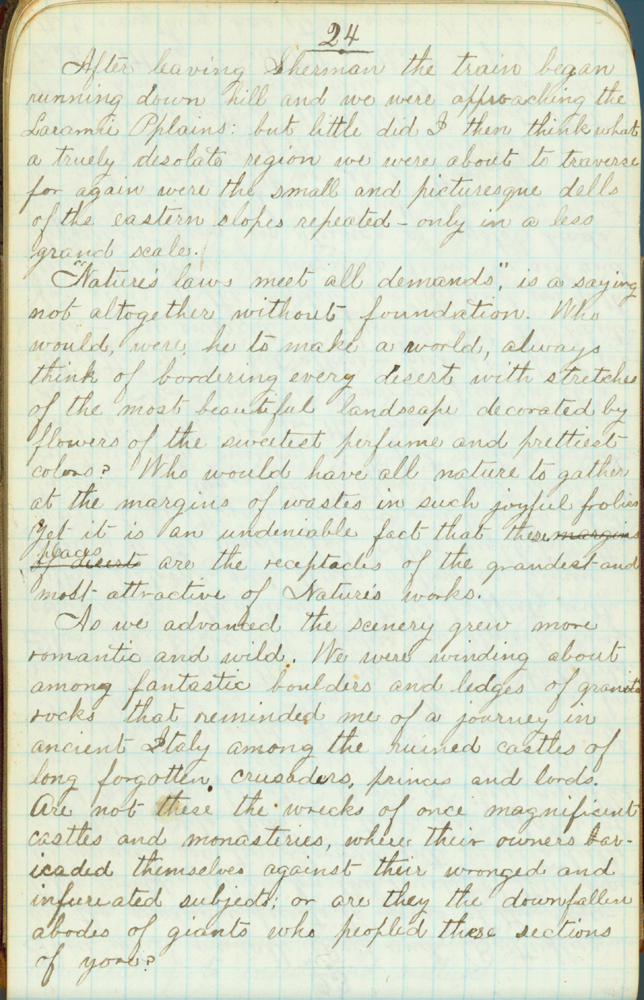 24
After leaving Sherman the train began
running down hill and we were approaching the
Laramie Pplains: but little did I then think what
a truely desolate region we were about to traverse
for again were the small and picturesque dells
of the eastern slopes repeated – only in a less
grand scale.
"Nature's laws meet all demands", is a saying
not altogether without foundation. Who
would, were he to make a world, always
think of bordering every desert with stretches
of the most beautiful landscape decorated by
flowers of the sweetest perfume and prettiest
colors? Who would have all nature to gather
at the margins of wastes in such joyful frolics
Yet it is an undeniable fact that these margins
places
of desert are the receptacles of the grandest and
most attractive of Nature's works.
As we advanced the scenery grew more
romantic and wild. We were winding about
among fantastic boulders and ledges of granite
rocks that reminded me of a journey in
ancient Italy among the ruined castles of
long forgotten crusaders, princes and lords.
Are not these the wrecks of once magnificent
castles and monasteries, where their owners bar-
icaded themselves against their wronged and
infureated subjects; or are they the downfallen
abodes of giants who peopled these sections
of yore?